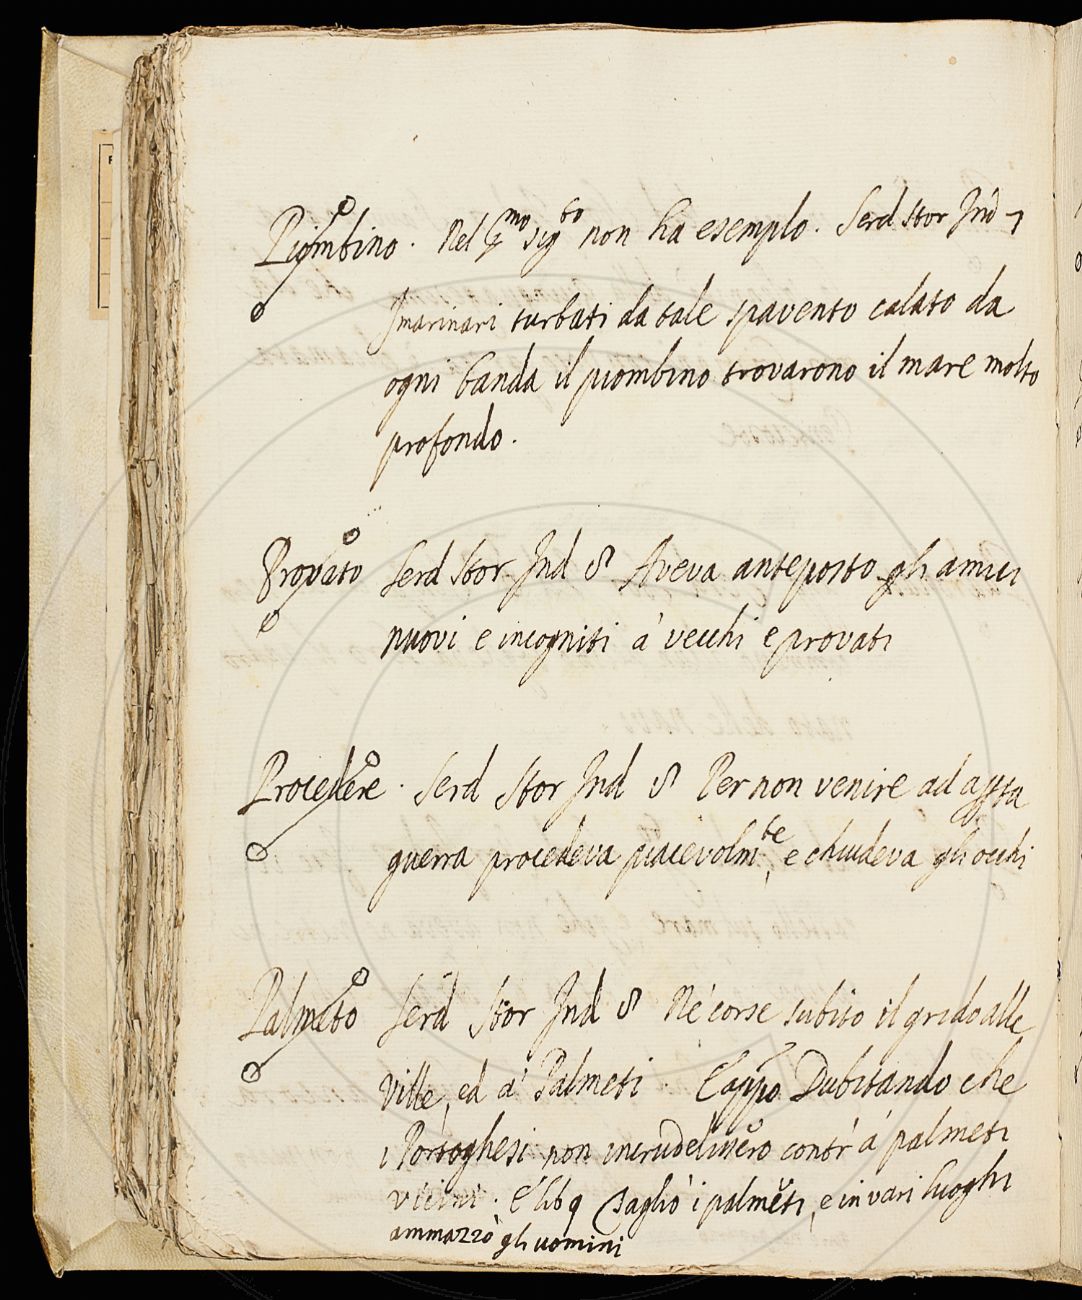 Piombino. Nel pmo sigto non ha esemplo. Serd Stor Ind 7
I marinari turbati da tale spavento calato da
ogni banda il piombino trovarono il mare molto
profondo.
Provato Serd Stor Ind 8 Aveva anteposto gli amici
nuovi e incogniti a' vecchi e provati
Procedere. Serd Stor Ind 8 Per non venire ad apta
guerra procedeva piacevolmte, e chiudeva gli occhi
Palmeto Serd Stor Ind 8 Ne corse subito il grido alle
Ville, ed a' Palmeti. E appo Dubitando che
i Portoghesi non incrudelissero contr' a' palmeti
vicini. E lib 9 Tagliò i palmeti, e in vari luoghi
ammazzò gli uomini